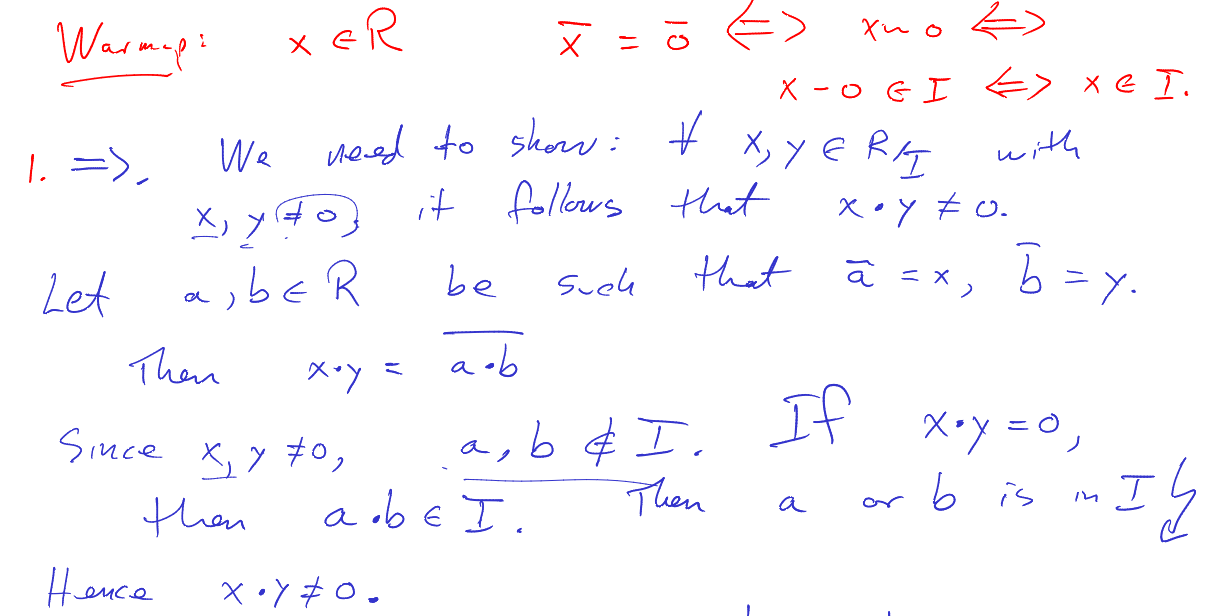 Warmup: x ∈ R   x̄ = 0̄ ⟺ x ~ 0 ⟺
x - 0 ∈ I ⟺ x ∈ I.
1. ⟹. We need to show: ∀ x, y ∈ R/I with
x, y ≠ 0, it follows that x · y ≠ 0.
Let a, b ∈ R be such that ā = x, b̄ = y.
Then x·y = \overline{a·b}
Since x, y ≠ 0, a, b ∉ I. If x·y = 0,
then a·b ∈ I. Then a or b is in I ↯
Hence x·y ≠ 0.